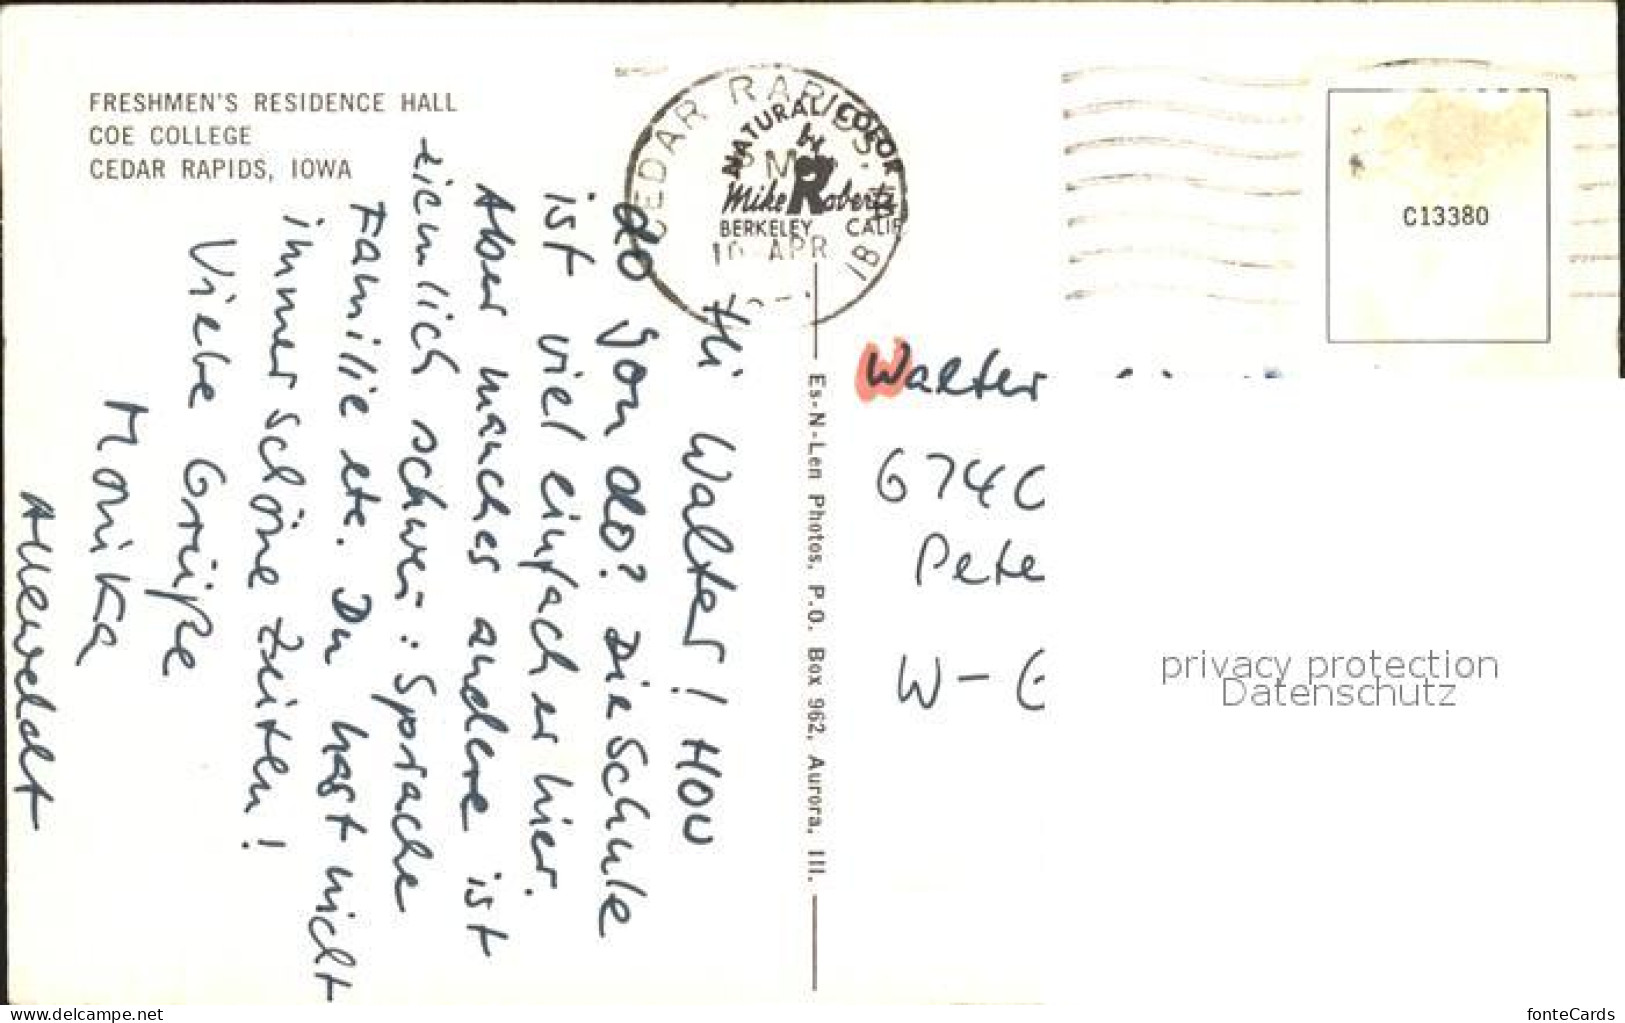 FRESHMEN'S RESIDENCE HALL
COE COLLEGE
CEDAR RAPIDS, IOWA
CEDAR RAPIDS
10 APR
NATURAL COLOR
by
Mike Roberts
BERKELEY CALIF
C13380
Hi Walter! How
do you do? Die Schule
ist viel einfacher hier.
Aber manches andere ist
ziemlich schwer: Sprache
Familie etc. Du hast nicht
immer schöne Zeiten!
Viebe Grüße
Monika
Alleweldt
Es-N-Len Photos, P.O. Box 962, Aurora, Ill.
Walter
674
Pete
W-
privacy protection
Datenschutz
www.delcampe.net
fonteCards